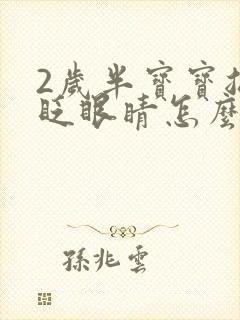 2歲半寶寶
眨眼睛怎麼
孫兆雲